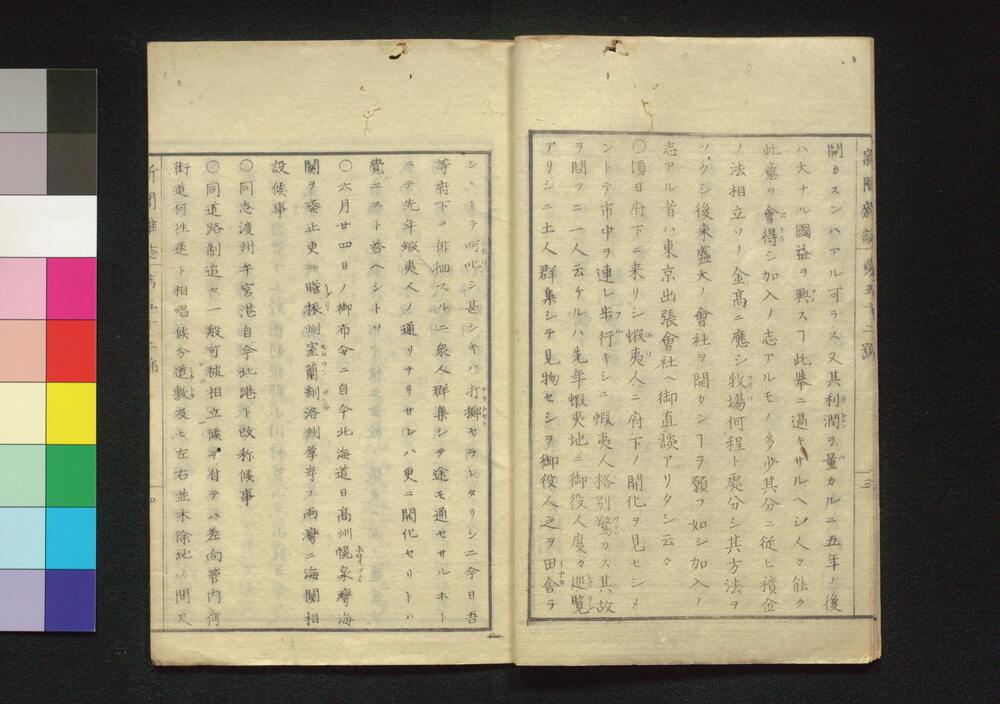 新聞雜誌 第五十二號 三
開カスンハアル可ラス又其利潤ヲ量カルニ五年ノ後
ハ大ナル國益ヲ興スヿ此擧ニ過キサルヘシ人々能ク
此意ヲ會得シ加入ノ志アルモノ多少其分ニ從ヒ積金
ノ法相立ソノ金高ニ應シ牧場何程ト處分シ其方法ヲ
ツクシ後来盛大ノ會社ヲ開カンヿヲ願フ如シ加入ノ
志アル者ハ東京出張會社ヘ御直談アリタシ云々
〇頃日府下ニ来リシ蝦夷人ニ府下ノ開化ヲ見セシメ
ントテ市中ヲ連レ歩行キシニ蝦夷人格別驚カス其故
ヲ問フニ一人云ケルハ先年蝦夷地ニ御役人度々巡覧
アリシニ土人群集シテ見物セシヲ御役人之ヲ田舎ラ
シヽトテ呵叱シ甚シキハ打擲セラレタリシニ今日吾
等府下ニ徘徊スルニ衆人群集シテ途モ通セサルホト
ニテ先年蝦夷人ノ通リナリサレハ更ニ開化セリトハ
覺ニスト答ヘシトソ
〇六月廿四日ノ御布令ニ自今北海道日高州幌泉灣海
關ヲ廢止更ニ膽振州室蘭制洛州厚岸ノ両灣ニ海關相
設候事
〇同志渡州午宮港自今北港ト改称候事
〇同道路制追々一般可被相立候ニ付テハ差向管内何
街道何往還ト相唱候分道敷及ヒ左右並木除地ノ間尺
新聞雜誌 第五十二號 四